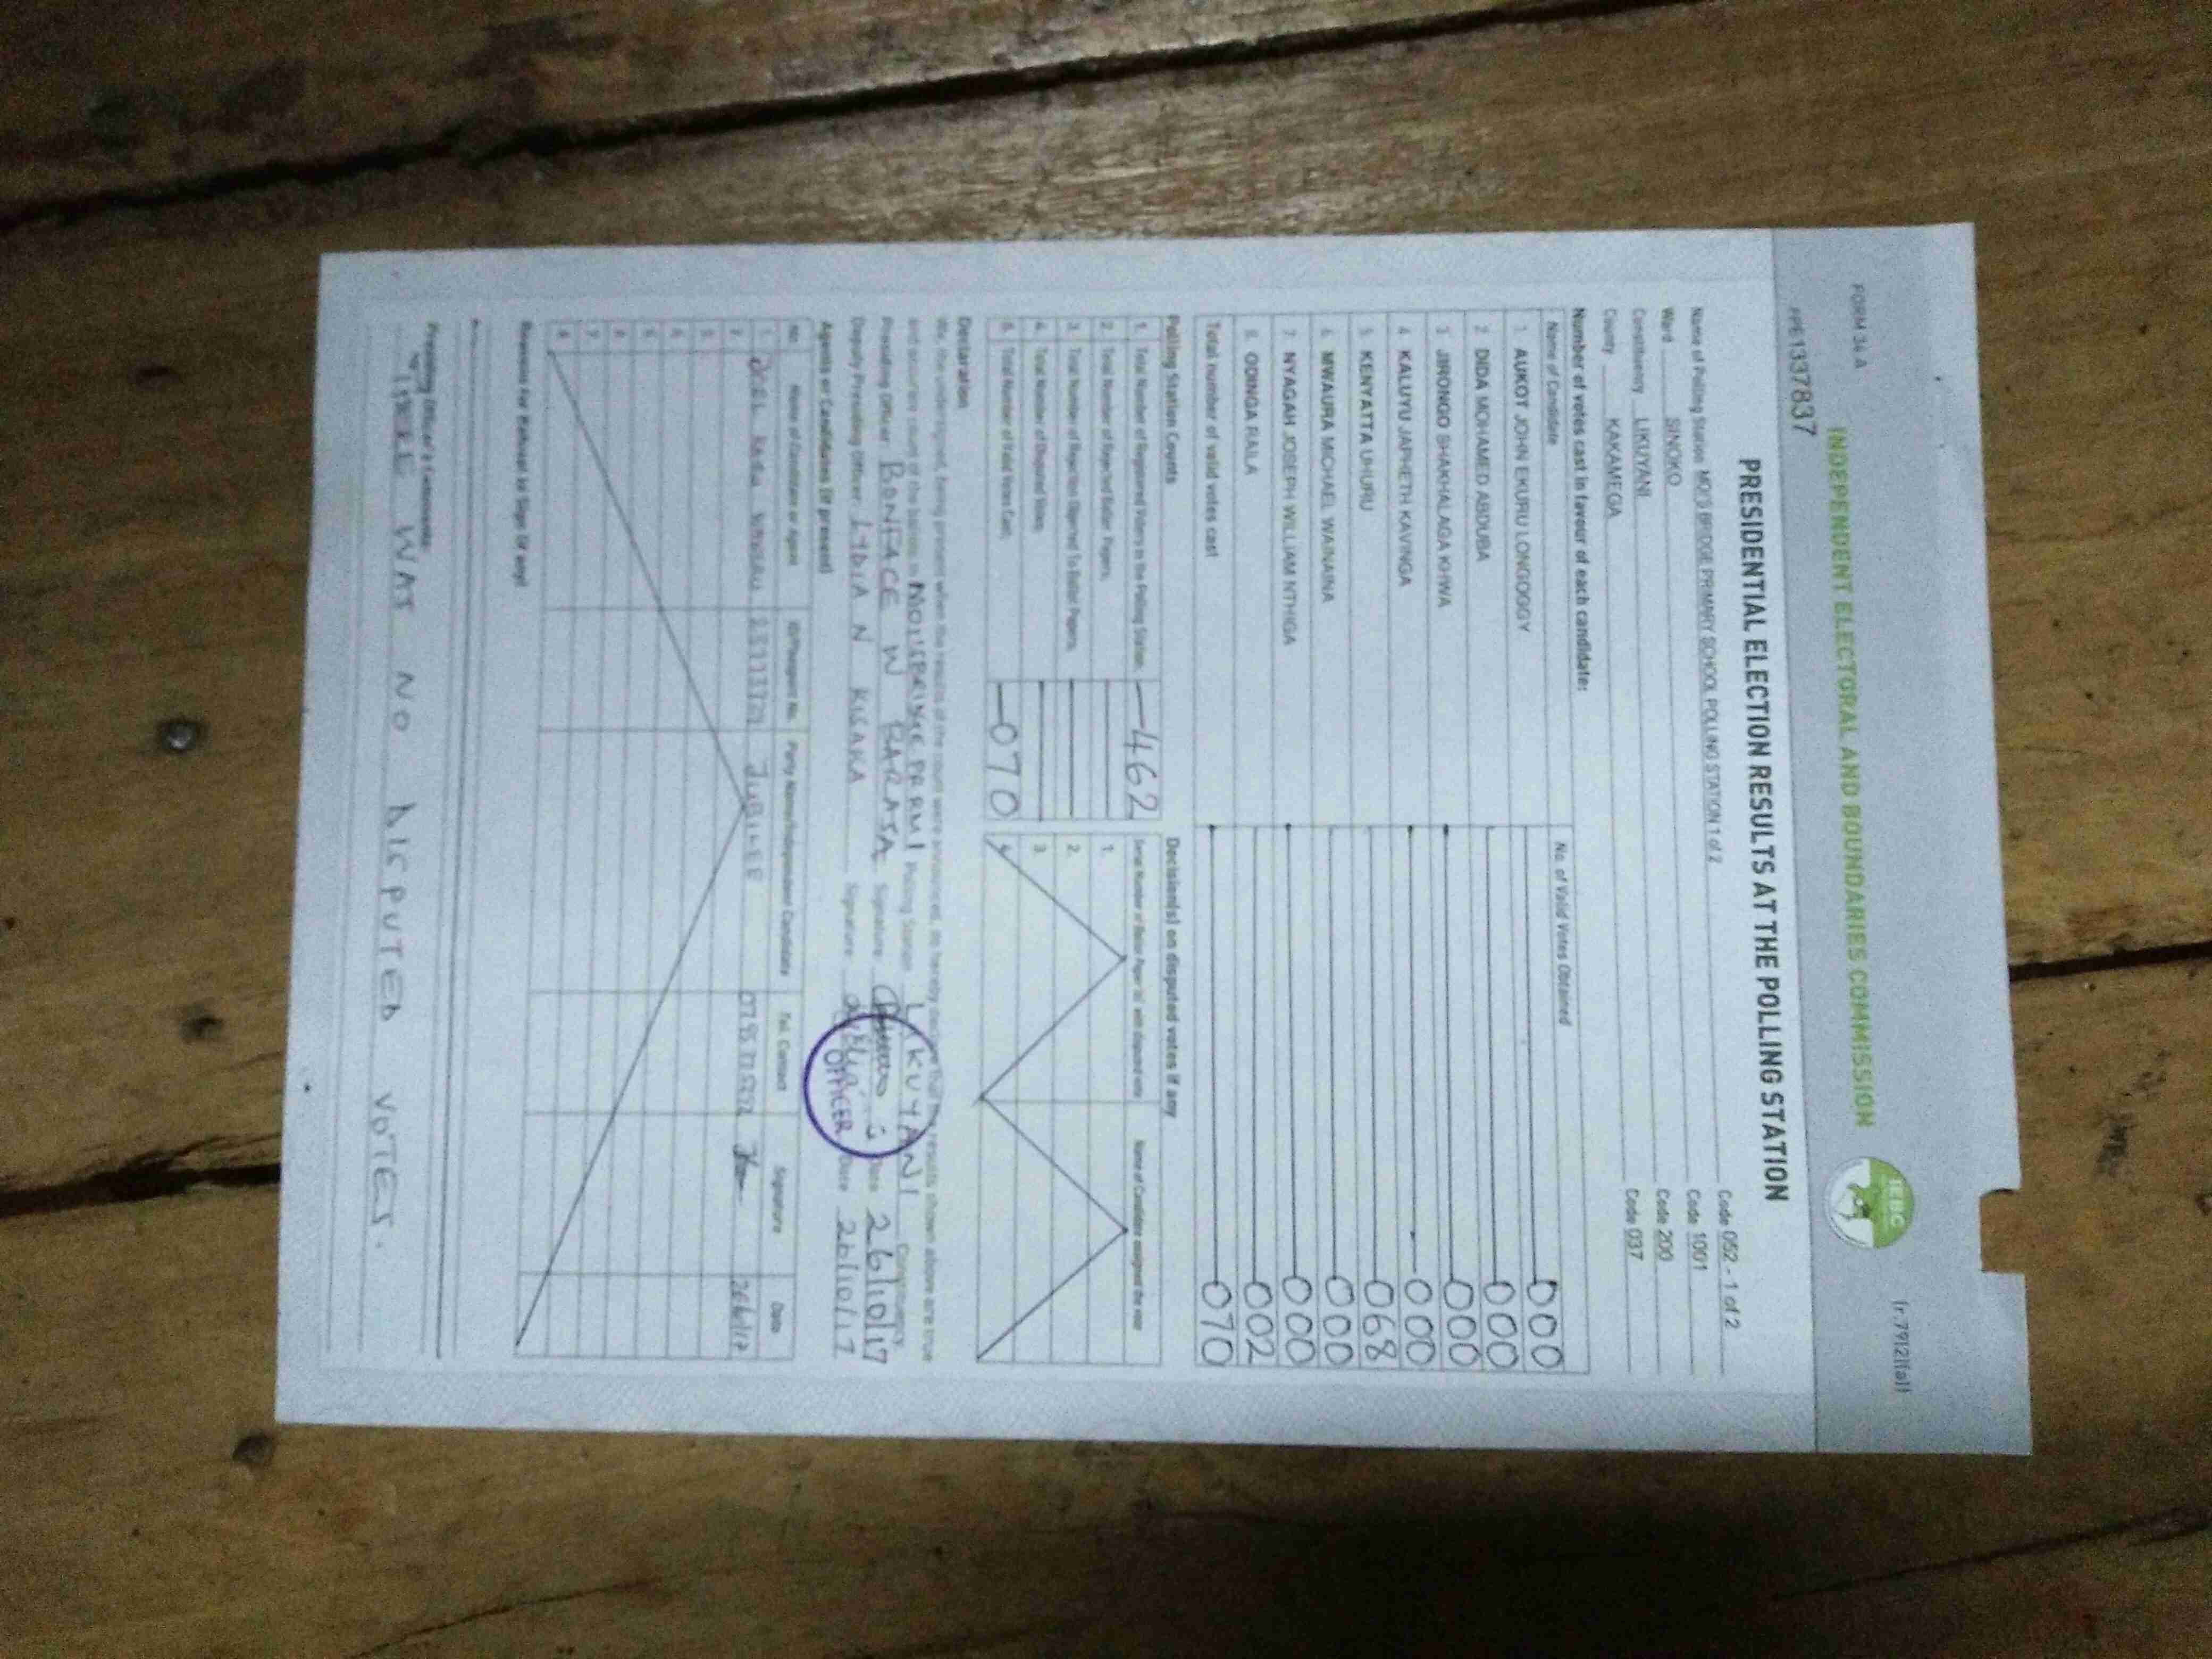 FORM 34 A
(r.79(2)(a))
INDEPENDENT ELECTORAL AND BOUNDARIES COMMISSION
IEBC
PPE1337837
PRESIDENTIAL ELECTION RESULTS AT THE POLLING STATION
Name of Polling Station MOI'S BRIDGE PRIMARY SCHOOL POLLING STATION 1 of 2 Code 052 - 1 of 2
Ward SINOKO Code 1001
Constituency LIKUYANI Code 200
County KAKAMEGA Code 037
Number of votes cast in favour of each candidate:
Name of Candidate No. of Valid Votes Obtained
1. AUKOT JOHN EKURU LONGOGGY 000
2. DIDA MOHAMED ABDUBA 000
3. JIRONGO SHAKHALAGA KHWA 000
4. KALUYU JAPHETH KAVINGA 000
5. KENYATTA UHURU 068
6. MWAURA MICHAEL WAINAINA 000
7. NYAGAH JOSEPH WILLIAM NTHIGA 000
8. ODINGA RAILA 002
Total number of valid votes cast 070
Polling Station Counts
1. Total Number of Registered Voters in the Polling Station 462
2. Total Number of Rejected Ballot Papers
3. Total Number of Rejection Objected To Ballot Papers
4. Total Number of Disputed Votes
5. Total Number of Valid Votes Cast 070
Decision(s) on disputed votes if any
Serial Number of Ballot Paper (s) with disputed vote Name of Candidate assigned the vote
1.
2.
3.
Declaration
We, the undersigned, being present when the results of the count were announced, do hereby declare that the results shown above are true
and accurate count of the ballots in Polling Station LIKUYANI Constituency
Presiding Officer BONFACE W BARASA Signature Date 26/10/17
Deputy Presiding Officer LYDIA N KISAKA Signature Date 26/10/17
OFFICER
Agents or Candidates (if present)
No. Name of Candidate or Agent ID/Passport No. Party Name/Independent Candidate Tel. Contact Signature Date
1. JUBILEE 26/10/17
2
3
4
5
6
7
8
Reasons For Refusal to Sign (if any)
Presiding Officer's Comments:
THERE WAS NO DISPUTED VOTES.